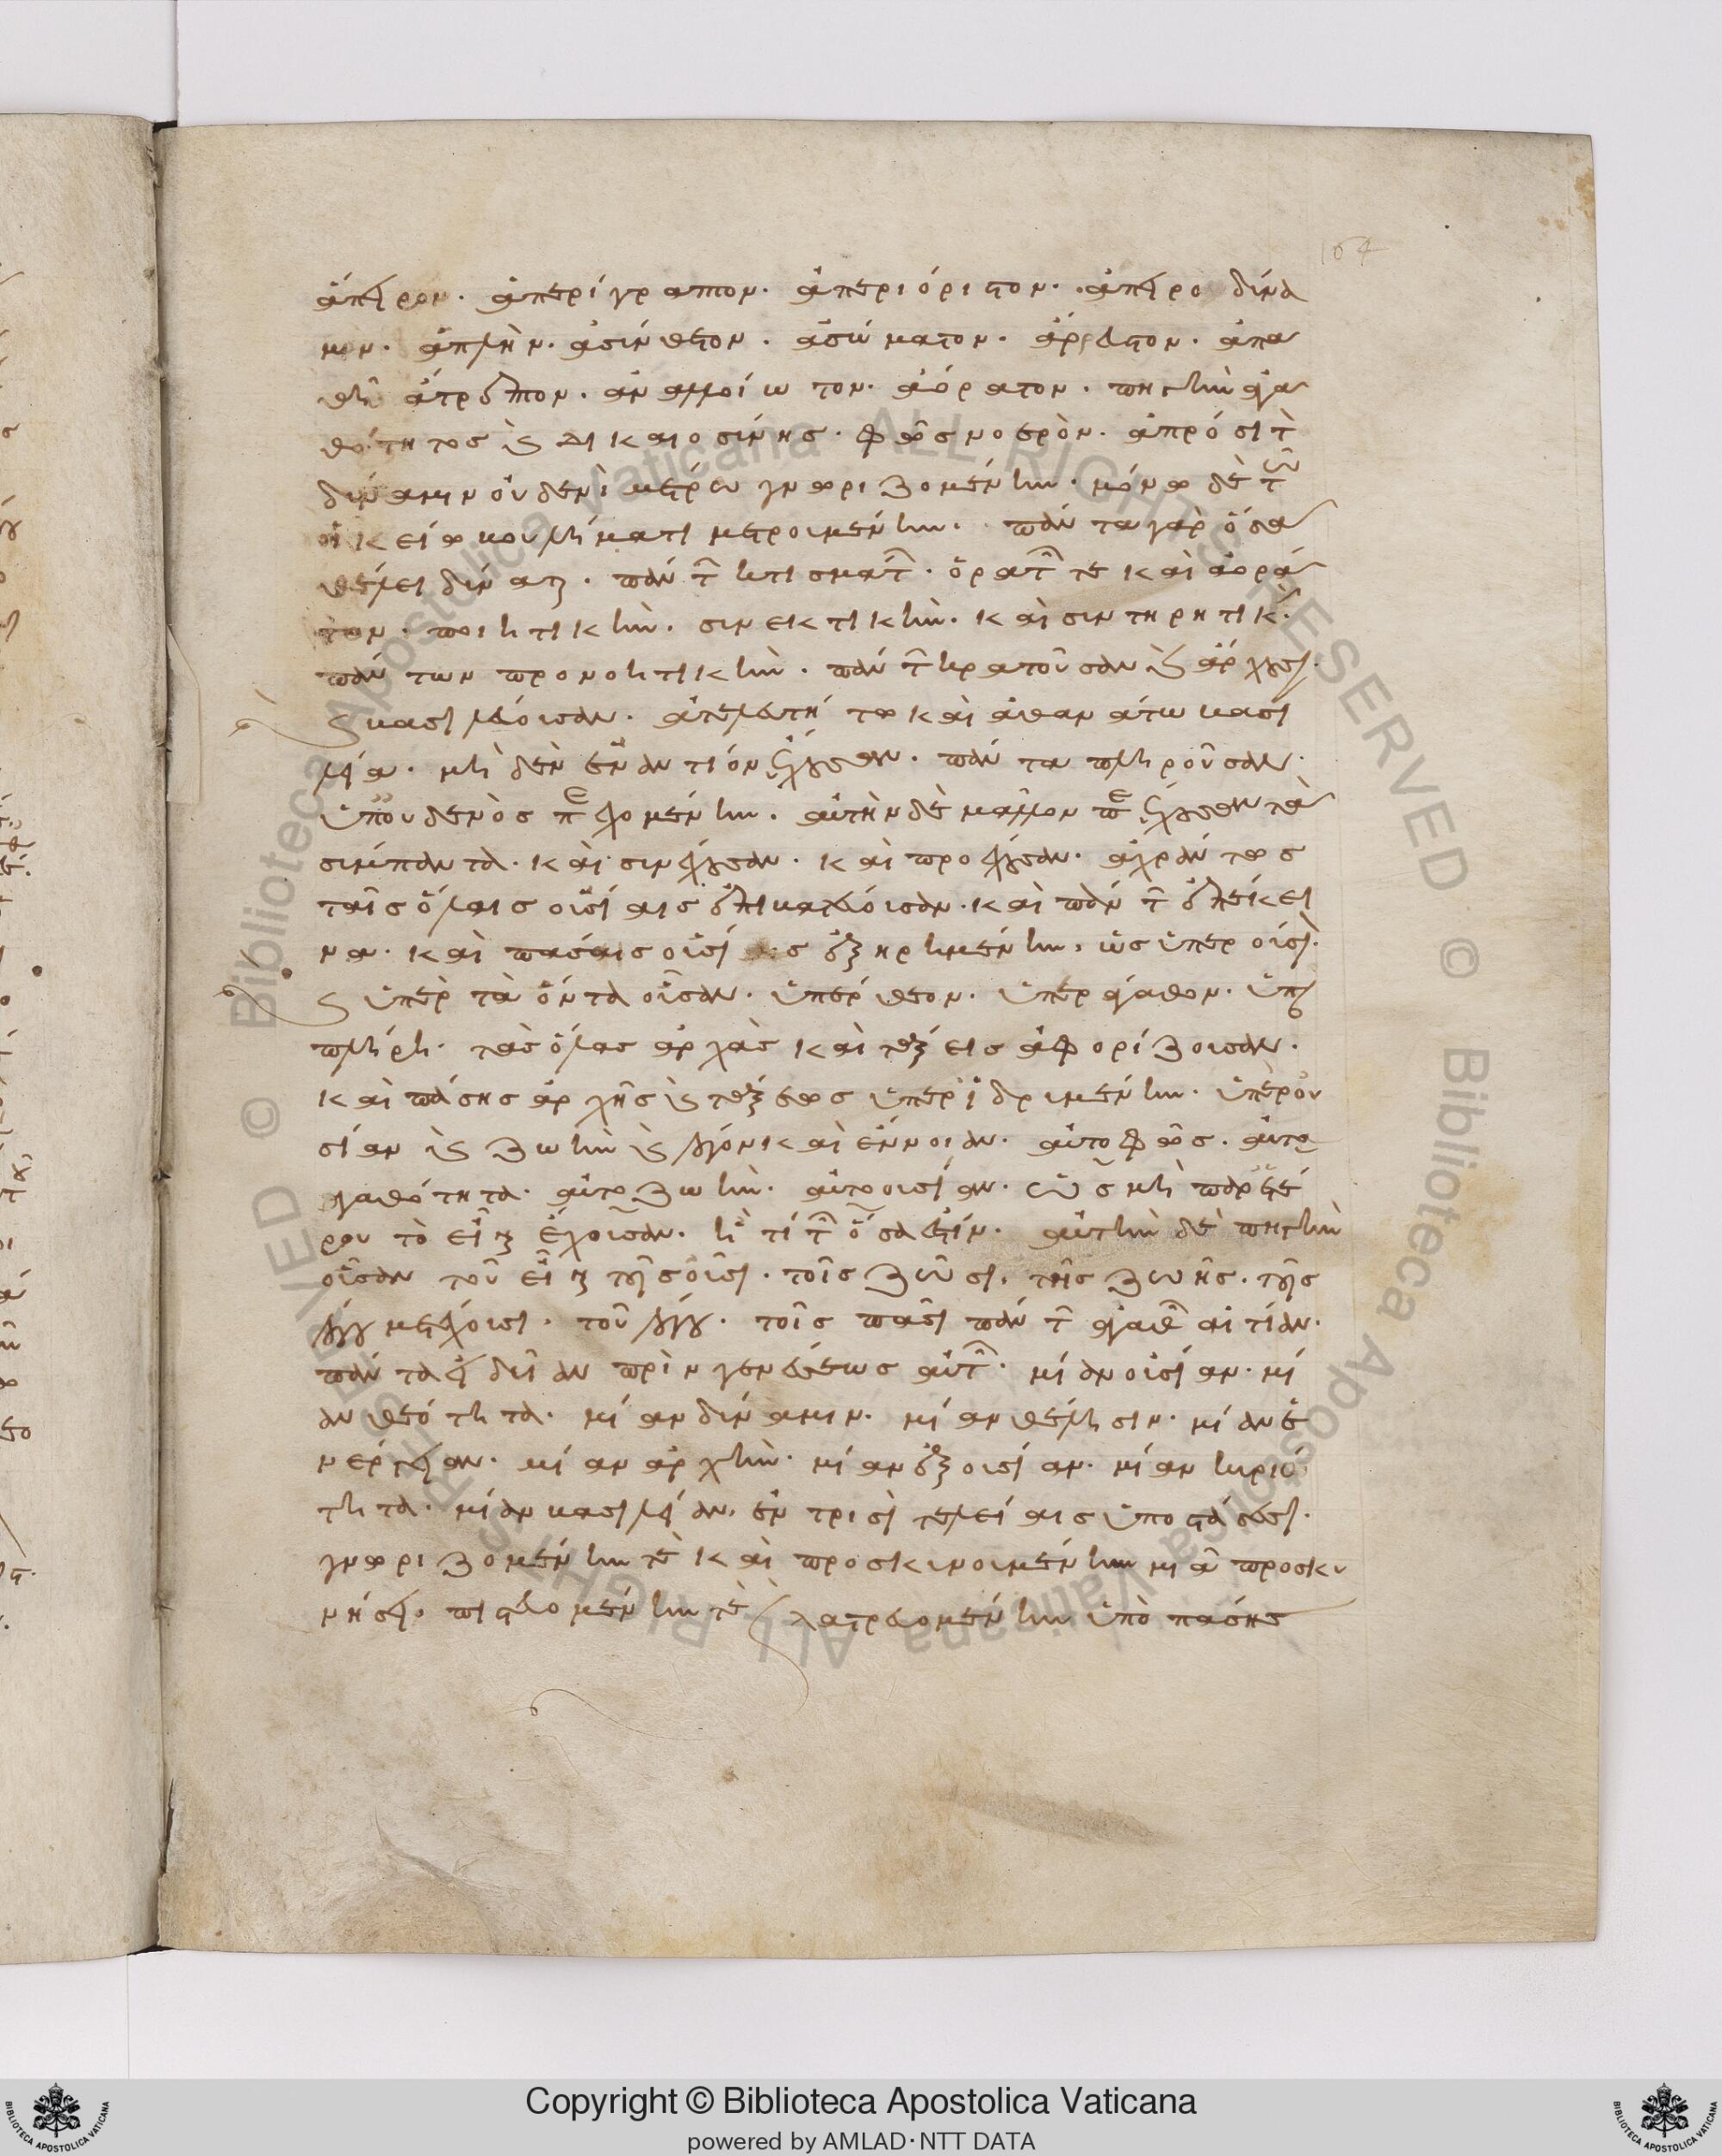 164
ἄπειρον. ἀπερίγραπτον. ἀπεριόριστον. ἀπειροδύνα
μον. ἁπλὴν. ἀσύνθετον. ἀσώματον. ἄρρευστον. ἀπα
θῆ ἄτρεπτον. ἀναλλοίωτον. ἀόρατον. πηγὴν ἀγα
θότητος καὶ δικαιοσύνης. φῶς νοερὸν. ἀπρόσιτ
δύναμιν οὐδενὶ μέτρω γνωριζομένην. μόνω δὲ τῶ
οἰκείω βουλήματι μετρουμένην. πάντα γὰρ ὅσα
θέλει δύναται. πάντ κτισμάτ. ὁρατ τε καὶ ἀορά
των. ποιητικὴν. συνεκτικὴν. καὶ συντηρητικ.
πάντων προνοητικὴν. πάντ κρατοῦσαν καὶ ἄρχουσ.
καὶ βασιλεύουσαν. ἀτελευτήτω καὶ ἀθανάτω βασι
λεία. μηδὲν ἐναντίον ἔχουσαν. πάντα πληροῦσαν.
ὑπουδενὸς περιεχομένην. αὐτὴν δὲ μᾶλλον περιέχουσαν τὰ
σύμπαντα. καὶ συνέχουσαν. καὶ προέχουσαν. ἀχράντως
ταῖς ὅλαις οὐσίαις ἐπιβατεύουσαν. καὶ πάντ ἐπέκει
να. καὶ πάσαις οὐσίας ἐξηρημένην, ὡς ὑπερούσι.
καὶ ὑπὲρ τὰ ὄντα οὖσαν. ὑπέρθεον. ὑπεράγαθον. ὑπερ
πλήρη. τὰς ὅλας ἀρχὰς καὶ τάξεις ἀφορίζουσαν.
καὶ πάσης ἀρχῆς καὶ τάξεως ὑπεριδρυμένην. ὑπὲρ οὐ
σίαν καὶ ζωὴν καὶ λόγον καὶ ἔννοιαν. αὐτοφῶς. αὐτο
αγαθότητα. αὐτοζωὴν. αὐτοουσίαν. ὡς μὴ παρετέ
ρου τὸ εἶναι ἔχουσαν. ἤ τί τ ὅσα ἐστίν. αὐτὴν δὲ πηγὴν
οὖσαν τοῦ εἶναι τοῖς οὖσι. τοῖς ζῶσι, τῆς ζωῆς. τοῖς
λόγου μετέχουσι. τοῦ λόγου. τοῖς πᾶσι πάντ ἀγαθ αἰτίαν.
πάντα εἰδυῖαν πρὶν γενέσεως αὐτ. μίαν οὐσίαν. μί
αν θεότητα. μίαν δύναμιν. μίαν θέλησιν. μίαν ἐ
νέργειαν. μίαν ἀρχὴν. μίαν ἐξουσίαν. μίαν κυριό
τητα. μίαν βασιλείαν. ἐν τρισὶ τελείαις ὑποστάσεσι.
γνωριζομένην τὲ καὶ προσκυνουμένην μιᾶ προσκυ
νήσει. πιστευομένην τὲ καὶ λατρευομένην ὑπὸ πάσης
© Biblioteca Apostolica Vaticana ALL RIGHTS RESERVED
Copyright © Biblioteca Apostolica Vaticana
powered by AMLAD·NTT DATA